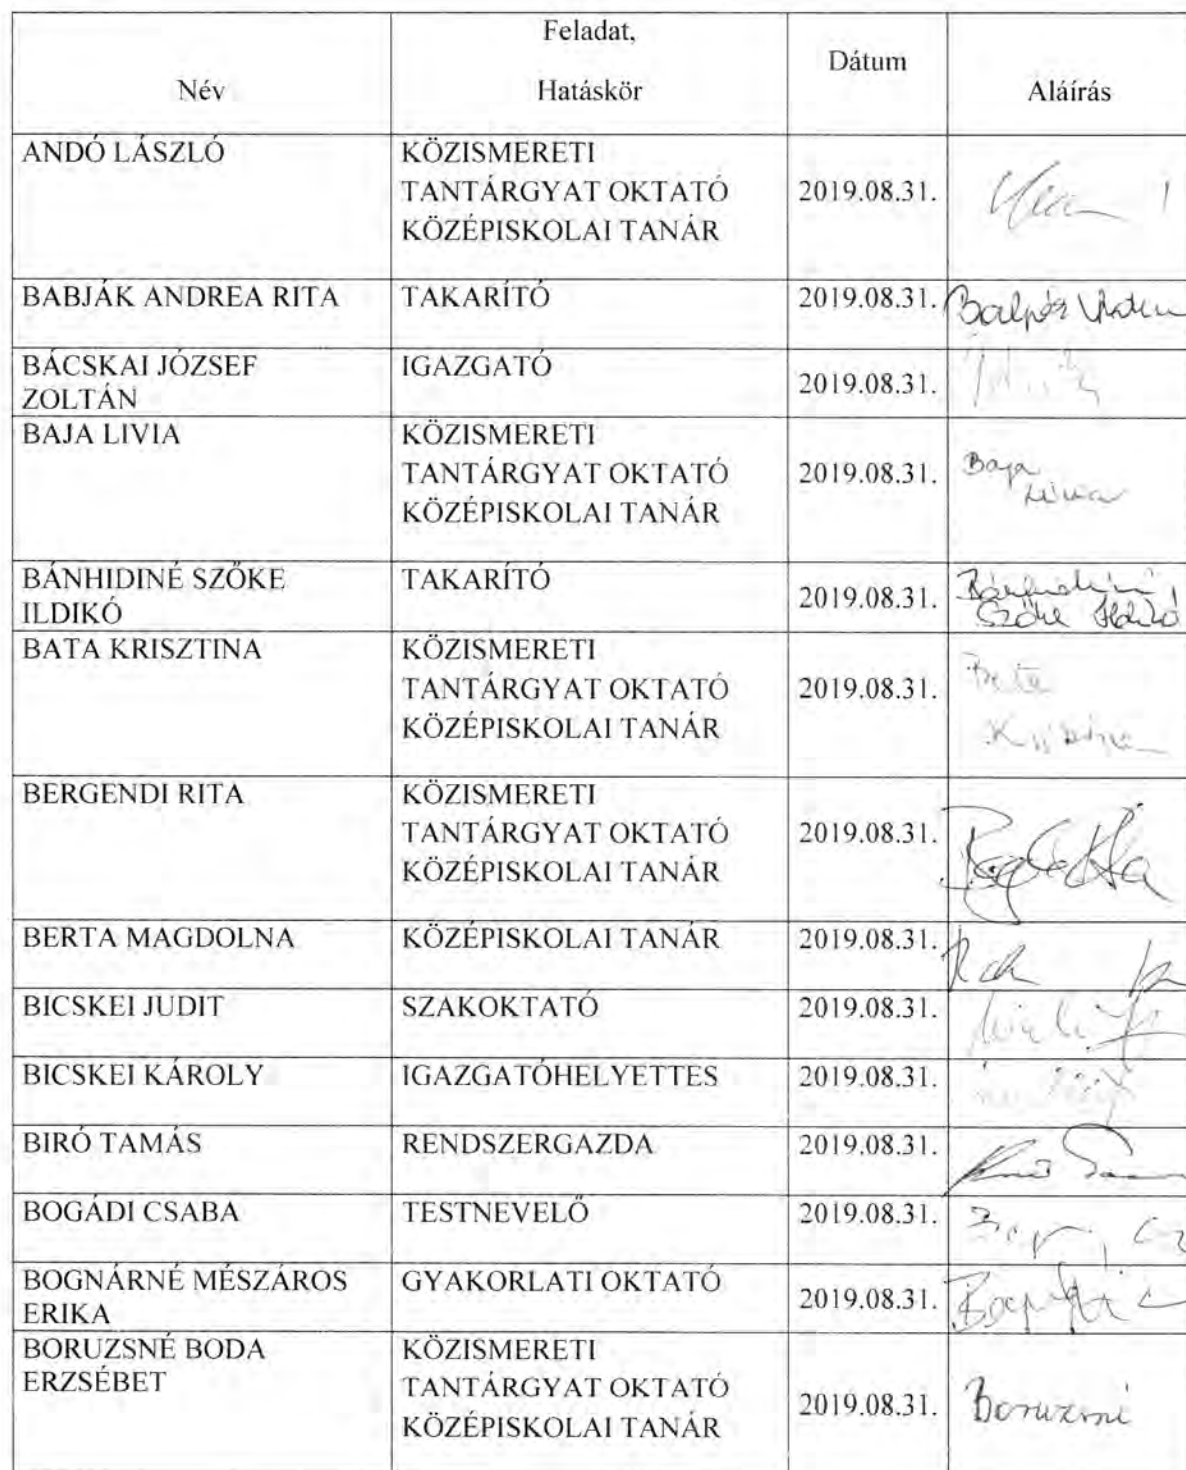 Név
Feladat,
Hatáskör
Dátum
Aláírás
ANDÓ LÁSZLÓ
KÖZISMERETI
TANTÁRGYAT OKTATÓ
KÖZÉPISKOLAI TANÁR
2019.08.31.
BABJÁK ANDREA RITA
TAKARÍTÓ
2019.08.31.
BÁCSKAI JÓZSEF
ZOLTÁN
IGAZGATÓ
2019.08.31.
BAJA LIVIA
KÖZISMERETI
TANTÁRGYAT OKTATÓ
KÖZÉPISKOLAI TANÁR
2019.08.31.
Baja
Livia
BÁNHIDINÉ SZŐKE
ILDIKÓ
TAKARÍTÓ
2019.08.31.
Bánhidiné
Szőke Ildikó
BATA KRISZTINA
KÖZISMERETI
TANTÁRGYAT OKTATÓ
KÖZÉPISKOLAI TANÁR
2019.08.31.
Bata
Krisztina
BERGENDI RITA
KÖZISMERETI
TANTÁRGYAT OKTATÓ
KÖZÉPISKOLAI TANÁR
2019.08.31.
BERTA MAGDOLNA
KÖZÉPISKOLAI TANÁR
2019.08.31.
BICSKEI JUDIT
SZAKOKTATÓ
2019.08.31.
BICSKEI KÁROLY
IGAZGATÓHELYETTES
2019.08.31.
BIRÓ TAMÁS
RENDSZERGAZDA
2019.08.31.
BOGÁDI CSABA
TESTNEVELŐ
2019.08.31.
BOGNÁRNÉ MÉSZÁROS
ERIKA
GYAKORLATI OKTATÓ
2019.08.31.
BORUZSNÉ BODA
ERZSÉBET
KÖZISMERETI
TANTÁRGYAT OKTATÓ
KÖZÉPISKOLAI TANÁR
2019.08.31.
Boruzsné